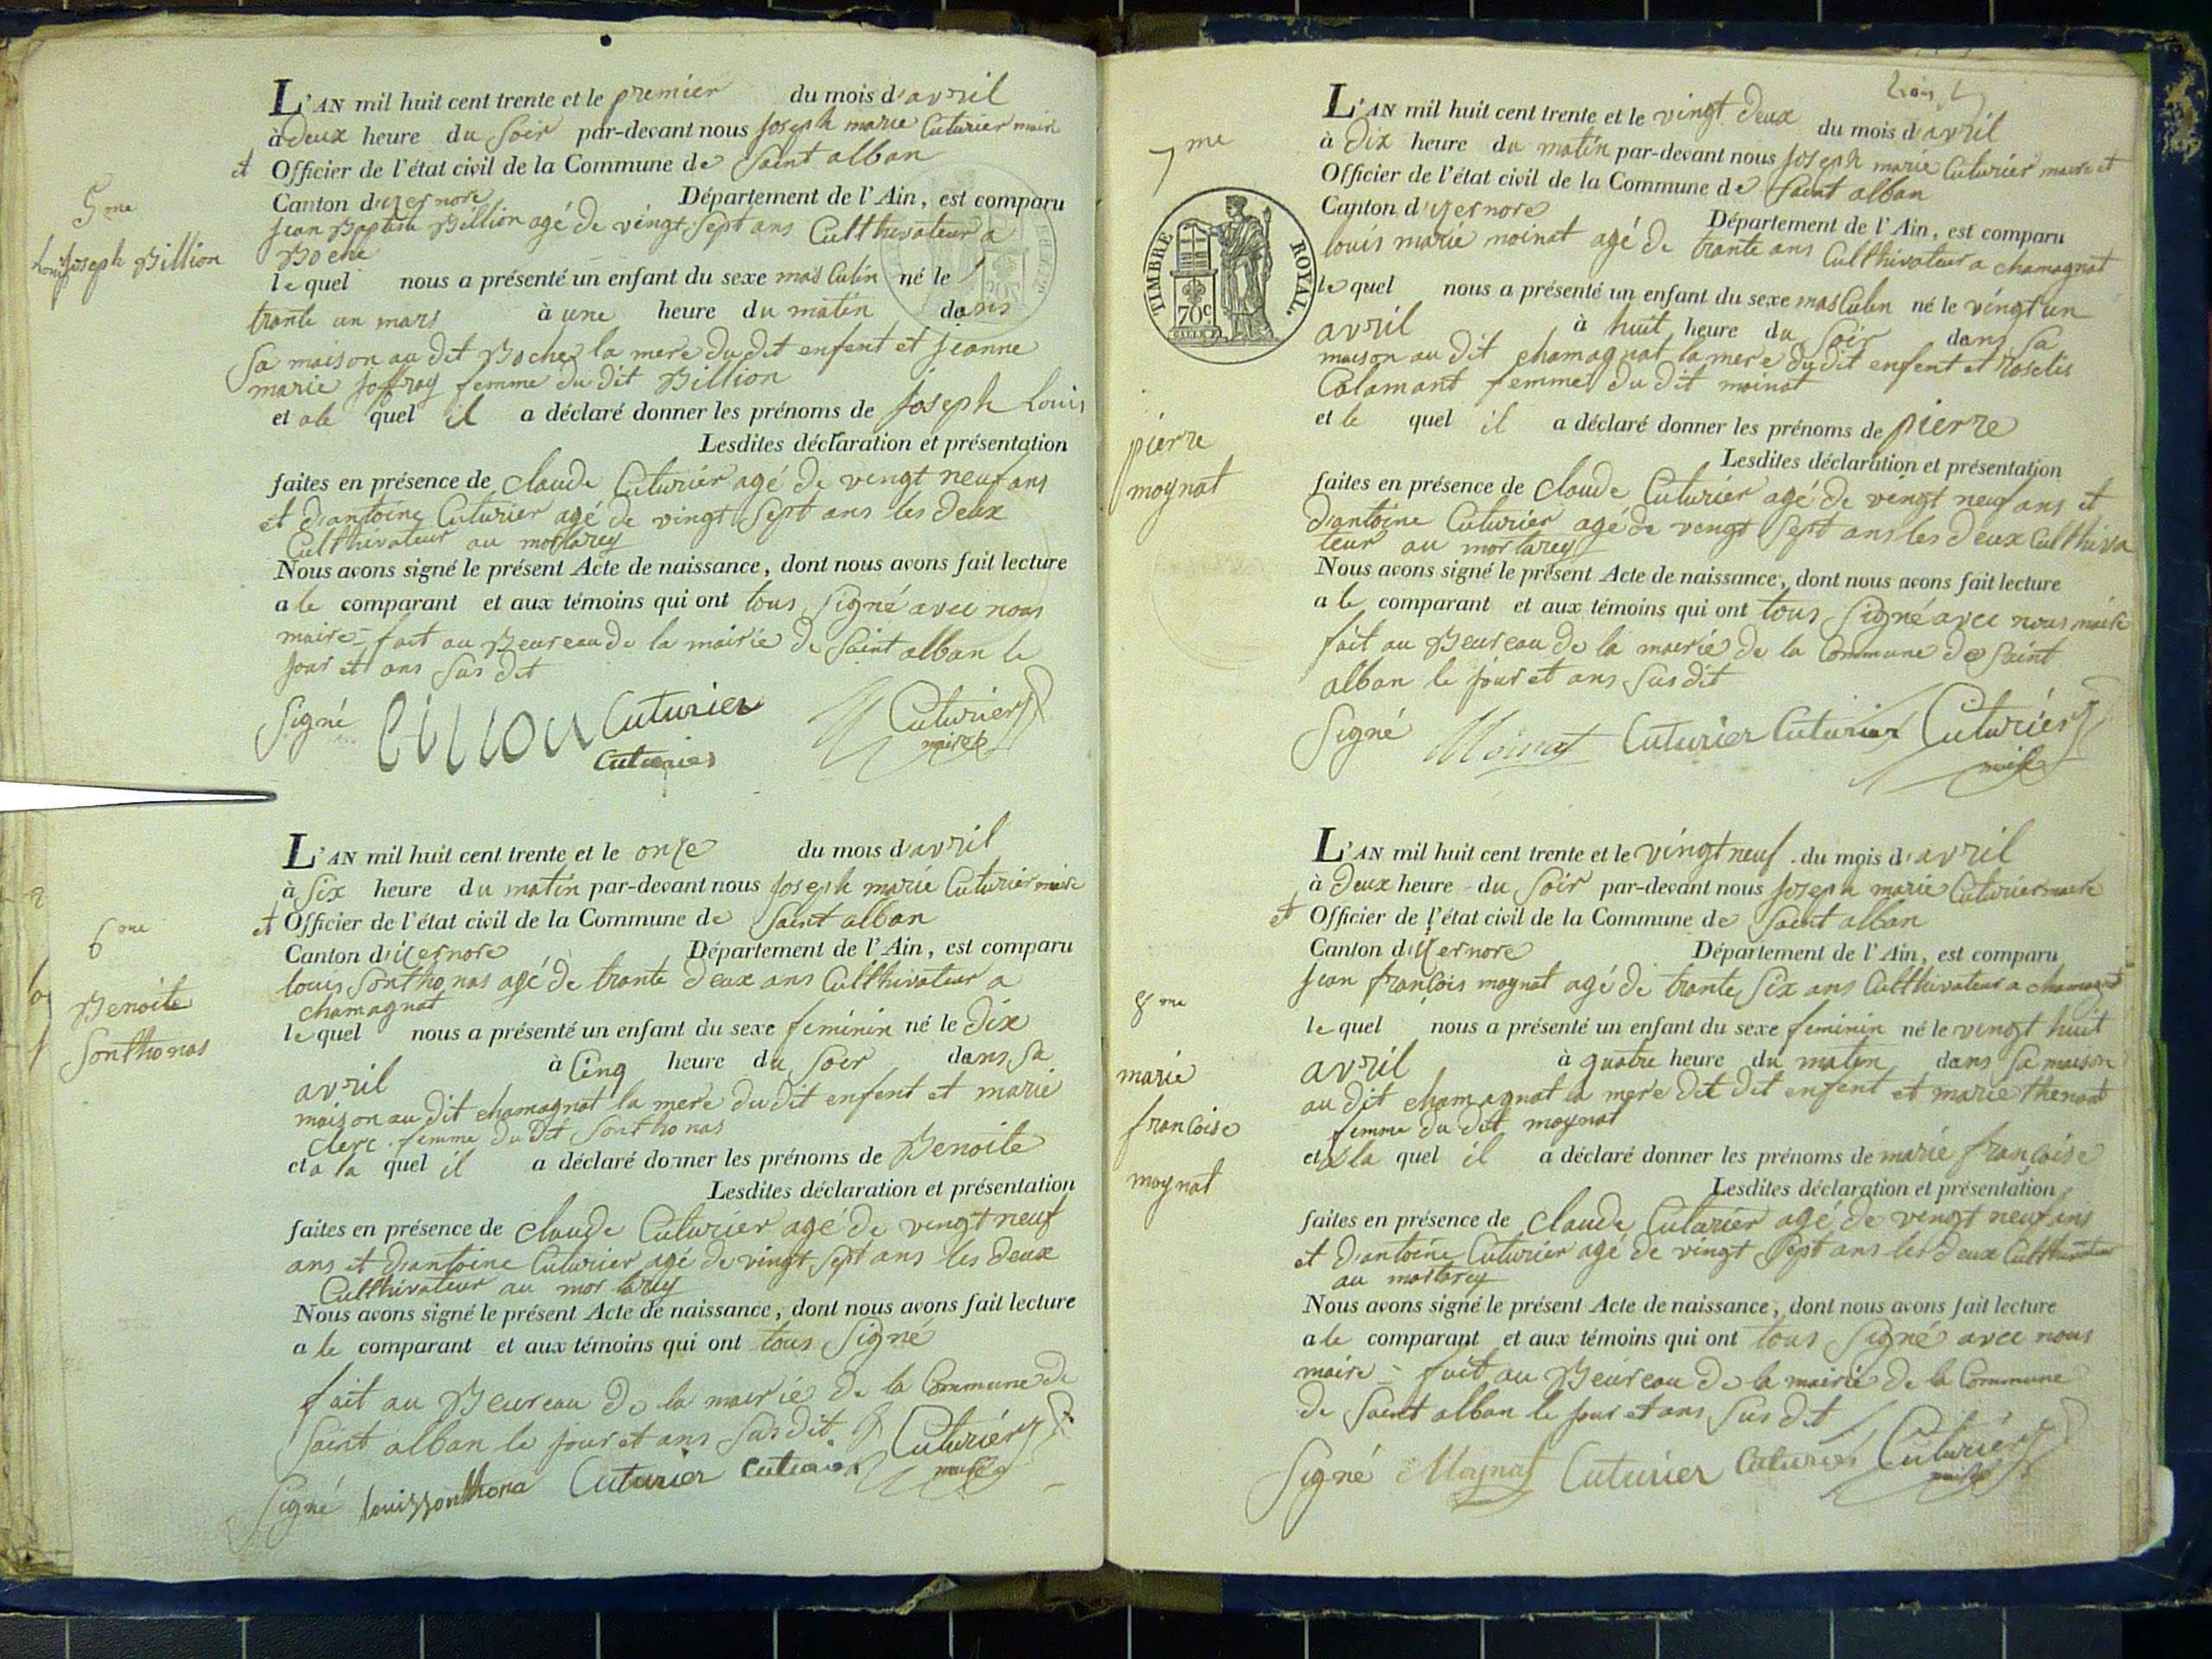 L'AN mil huit cent trente et le premier du mois d'avril
à deux heure du soir par-devant nous joseph marie Cuturier maire
et Officier de l'état civil de la Commune de Saint alban
Canton d'izernore Département de l'Ain, est comparu
5me
jean Baptiste Billion agé de vingt sept ans Culthivateur a
Louis joseph Billion
Boche
le quel nous a présenté un enfant du sexe masculin né le
trante un mars à une heure du matin dans
sa maison au dit Boche la mere du dit enfent et jeanne
marie joffray femme du dit Billion
et a le quel il a déclaré donner les prénoms de joseph Louis
Lesdites déclaration et présentation
faites en présence de claude Cuturier agé de vengt neuf ans
et d'antoine Cuturier agé de vingt sept ans les deux
Culthivateur au mortarey
Nous avons signé le présent Acte de naissance, dont nous avons fait lecture
a le comparant et aux témoins qui ont tous signé avec nous
maire = fait au Beureau de la mairie de Saint alban le
jour et ans sus dit
Signé Billion Cuturier Cuturier
Cuturier maire
L'AN mil huit cent trente et le onze du mois d'avril
à six heure du matin par-devant nous joseph marie Cuturier maire
et Officier de l'état civil de la Commune de Saint alban
6me
Canton d'izernore Département de l'Ain, est comparu
louis Sonthonas agé de trante deux ans Culthivateur a
Benoite
chamagnat
Sonthonas
le quel nous a présenté un enfant du sexe feminin né le dix
avril à Cinq heure du soir dans sa
maison au dit chamagnat la mere du dit enfent et marie
clerc femme du dit Sonthonas
et a la quel il a déclaré donner les prénoms de Benoite
Lesdites déclaration et présentation
faites en présence de claude Cuturier agé de vengt neuf
ans et d'antoine Cuturier agé de vingt sept ans les deux
Culthivateur au mortarey
Nous avons signé le présent Acte de naissance, dont nous avons fait lecture
a le comparant et aux témoins qui ont tous signé
fait au Beureau de la mairie de la Commune de
Saint alban le jour et ans sus dit Cuturier
Signé louis sonthona Cuturier Cuturier maire
L'AN mil huit cent trente et le vingt deux du mois d'avril
7me
à dix heure du matin par-devant nous joseph marie Cuturier maire et
Officier de l'état civil de la Commune de Saint alban
Canton d'izernore Département de l'Ain, est comparu
TIMBRE ROYAL.
70c
louis marie moinat agé de trante ans Culthivateur a chamagnat
le quel nous a présenté un enfant du sexe masculin né le vingt un
avril à huit heure du soir dans sa
maison au dit chamagnat la mere du dit enfent et roselis
Calamant femme du dit moinat
et le quel il a déclaré donner les prénoms de pierre
pierre
Lesdites déclaration et présentation
moynat
faites en présence de claude Cuturier agé de vengt neuf ans et
d'antoine Cuturier agé de vengt sept ans les deux Culthiva
teur au mortarey
Nous avons signé le présent Acte de naissance, dont nous avons fait lecture
a le comparant et aux témoins qui ont tous signé avec nous maire
fait au Beureau de la mairie de la Commune de Saint
alban le jour et ans sus dit
Signé Moinat Cuturier Cuturier Cuturier
maire
L'AN mil huit cent trente et le vingt neuf du mois d'avril
à deux heure du soir par-devant nous joseph marie Cuturier maire
et Officier de l'état civil de la Commune de Saint alban
Canton d'izernore Département de l'Ain, est comparu
jean francois moynat agé de trante six ans Culthivateur a chamagnat
8me
le quel nous a présenté un enfant du sexe feminin né le vingt huit
avril à quatre heure du matin dans sa maison
marie
au dit chamagnat la mere dit dit enfent et marie thenant
francoise
femme du dit moynat
et a la quel il a déclaré donner les prénoms de marie francoise
moynat
Lesdites déclaration et présentation
faites en présence de claude Cuturier agé de vengt neuf ans
et d'antoine Cuturier agé de vingt sept ans les deux Culthivateur
au mortarey
Nous avons signé le présent Acte de naissance, dont nous avons fait lecture
a le comparant et aux témoins qui ont tous signé avec nous
maire = fait au Beureau de la mairie de la Commune
de Saint alban le jour et ans sus dit
Signé Moynat Cuturier Cuturier Cuturier
maire